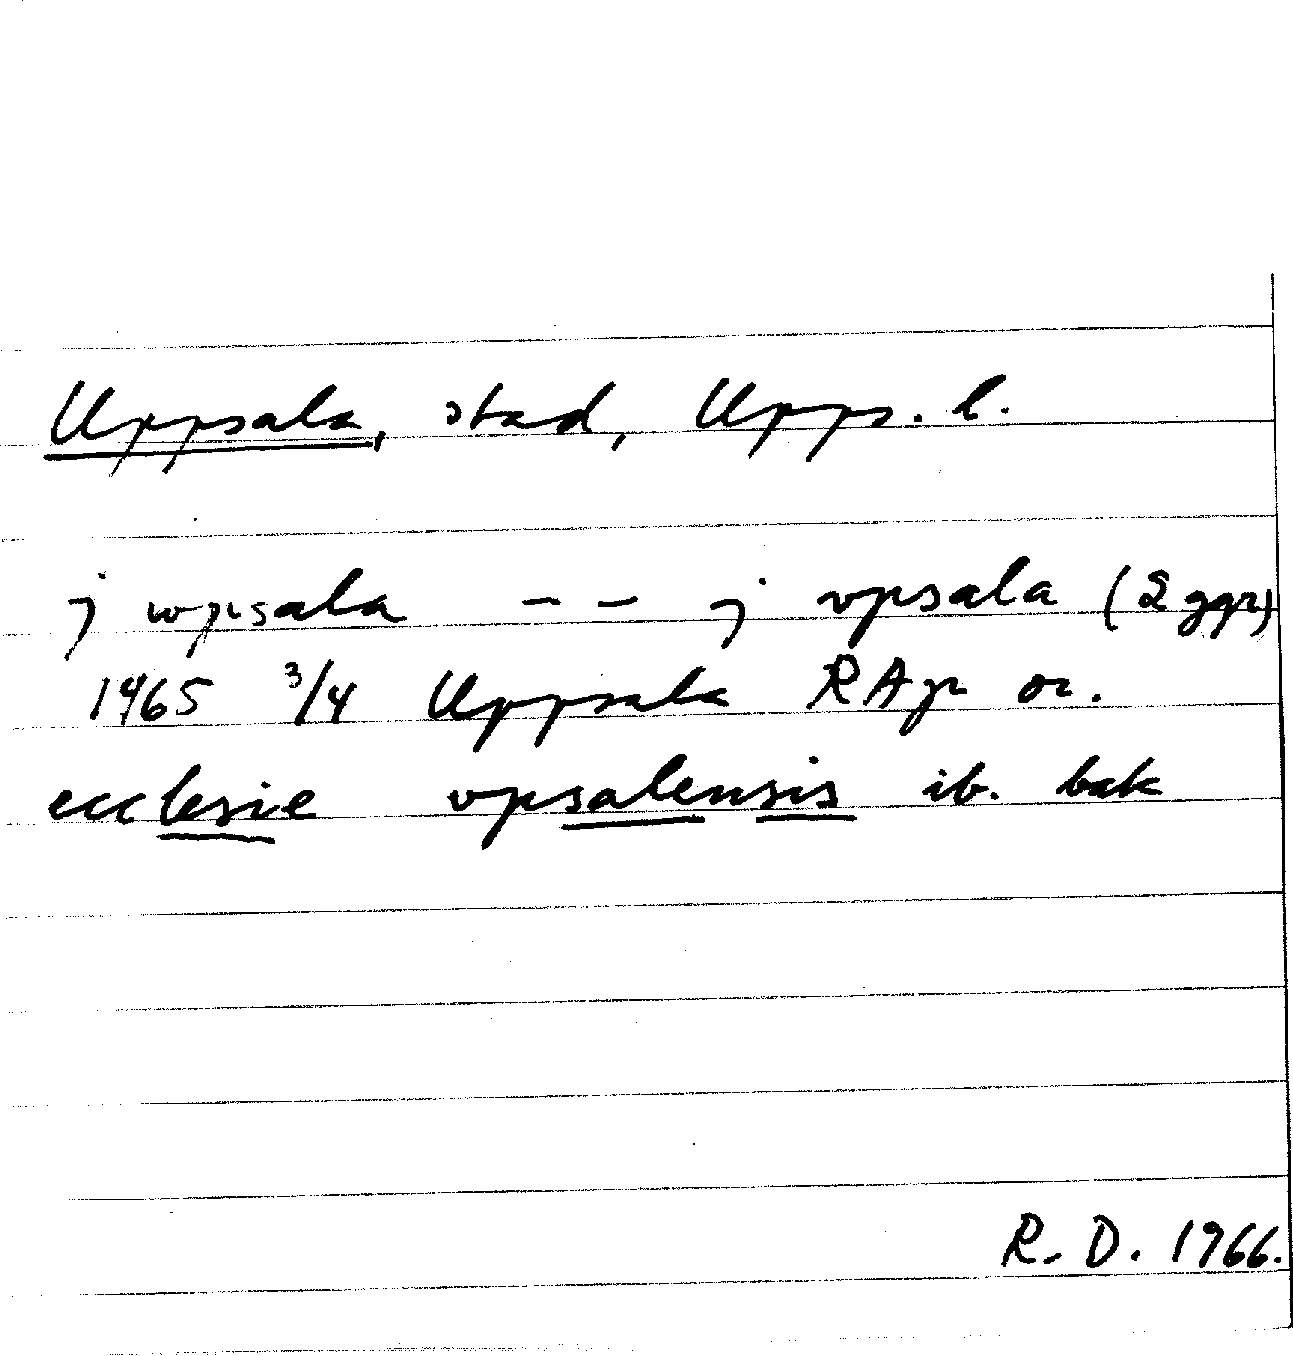 Uppsala, stad, Upps. l.
j wpsala -- j vpsala (2 ggr)
1465 3/4 Uppsala RAp or.
ecclesie vpsalensis ib. bak
R. D. 1966.